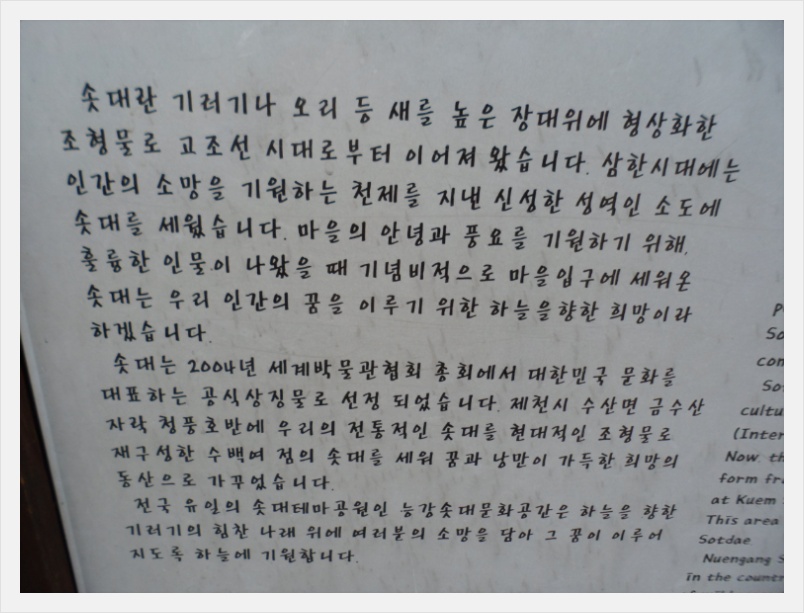 솟대란 기러기나 오리 등 새를 높은 장대위에 형상화한
조형물로 고조선 시대로부터 이어져 왔습니다. 삼한시대에는
인간의 소망을 기원하는 천제를 지낸 신성한 성역인 소도에
솟대를 세웠습니다. 마을의 안녕과 풍요를 기원하기 위해,
훌륭한 인물이 나왔을 때 기념비적으로 마을입구에 세워온
솟대는 우리 인간의 꿈을 이루기 위한 하늘을향한 희망이라
하겠습니다.
솟대는 2004년 세계박물관협회 총회에서 대한민국 문화를
대표하는 공식상징물로 선정 되었습니다. 제천시 수산면 금수산
자락 청풍호반에 우리의 전통적인 솟대를 현대적인 조형물로
재구성한 수백여 점의 솟대를 세워 꿈과 낭만이 가득한 희망의
동산으로 가꾸었습니다.
전국 유일의 솟대테마공원인 능강솟대문화공간은 하늘을 향한
기러기의 힘찬 나래 위에 여러분의 소망을 담아 그 꿈이 이루어
지도록 하늘에 기원합니다.
So
con
So
cultu
(Inter
Now, th
form fr
at Kuem
This area
Sotdae
Nuengang S
in the countr